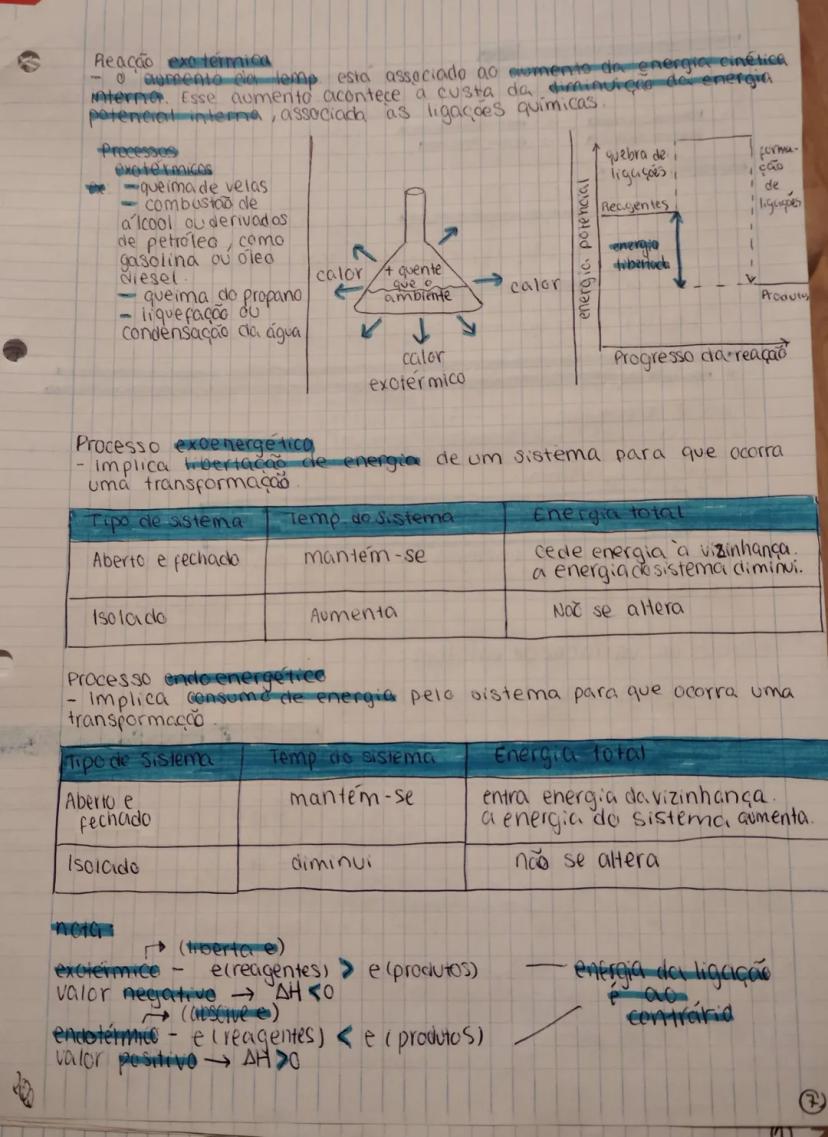 Reação exotérmica
- o aumento da temp está associado ao aumento da energia cinética
interna. Esse aumento acontece à custa da diminuição da energia
potencial interna, associada às ligações químicas.
Processos
exotérmicos
- queima de velas
- combustão de
álcool ou derivados
de petróleo, como
gasolina ou óleo
diesel.
- queima do propano
- liquefação ou
condensação da água
calor
+ quente
que o
ambiente
calor
calor
exotérmico
energia potencial
quebra de
ligações
Reagentes
energia
libertada
forma-
ção
de
ligações
Produtos
Progresso da reação
Processo exoenergético
- Implica libertação de energia de um sistema para que ocorra
uma transformação.
Tipo de sistema Temp do sistema Energia total
Aberto e fechado mantém-se cede energia à vizinhança.
a energia do sistema diminui.
Isolado Aumenta Não se altera
Processo endoenergético
- Implica consumo de energia pelo sistema para que ocorra uma
transformação.
Tipo de sistema Temp do sistema Energia total
Aberto e mantém-se entra energia da vizinhança.
fechado a energia do sistema aumenta.
Isolado diminui não se altera
nota:
↱ (liberta e)
exotérmico - e(reagentes) > e(produtos) — energia da ligação
valor negativo → ΔH<0 é ao
↱ (absorve e) contrário
endotérmico - e(reagentes) < e(produtos)
valor positivo → ΔH>0
7